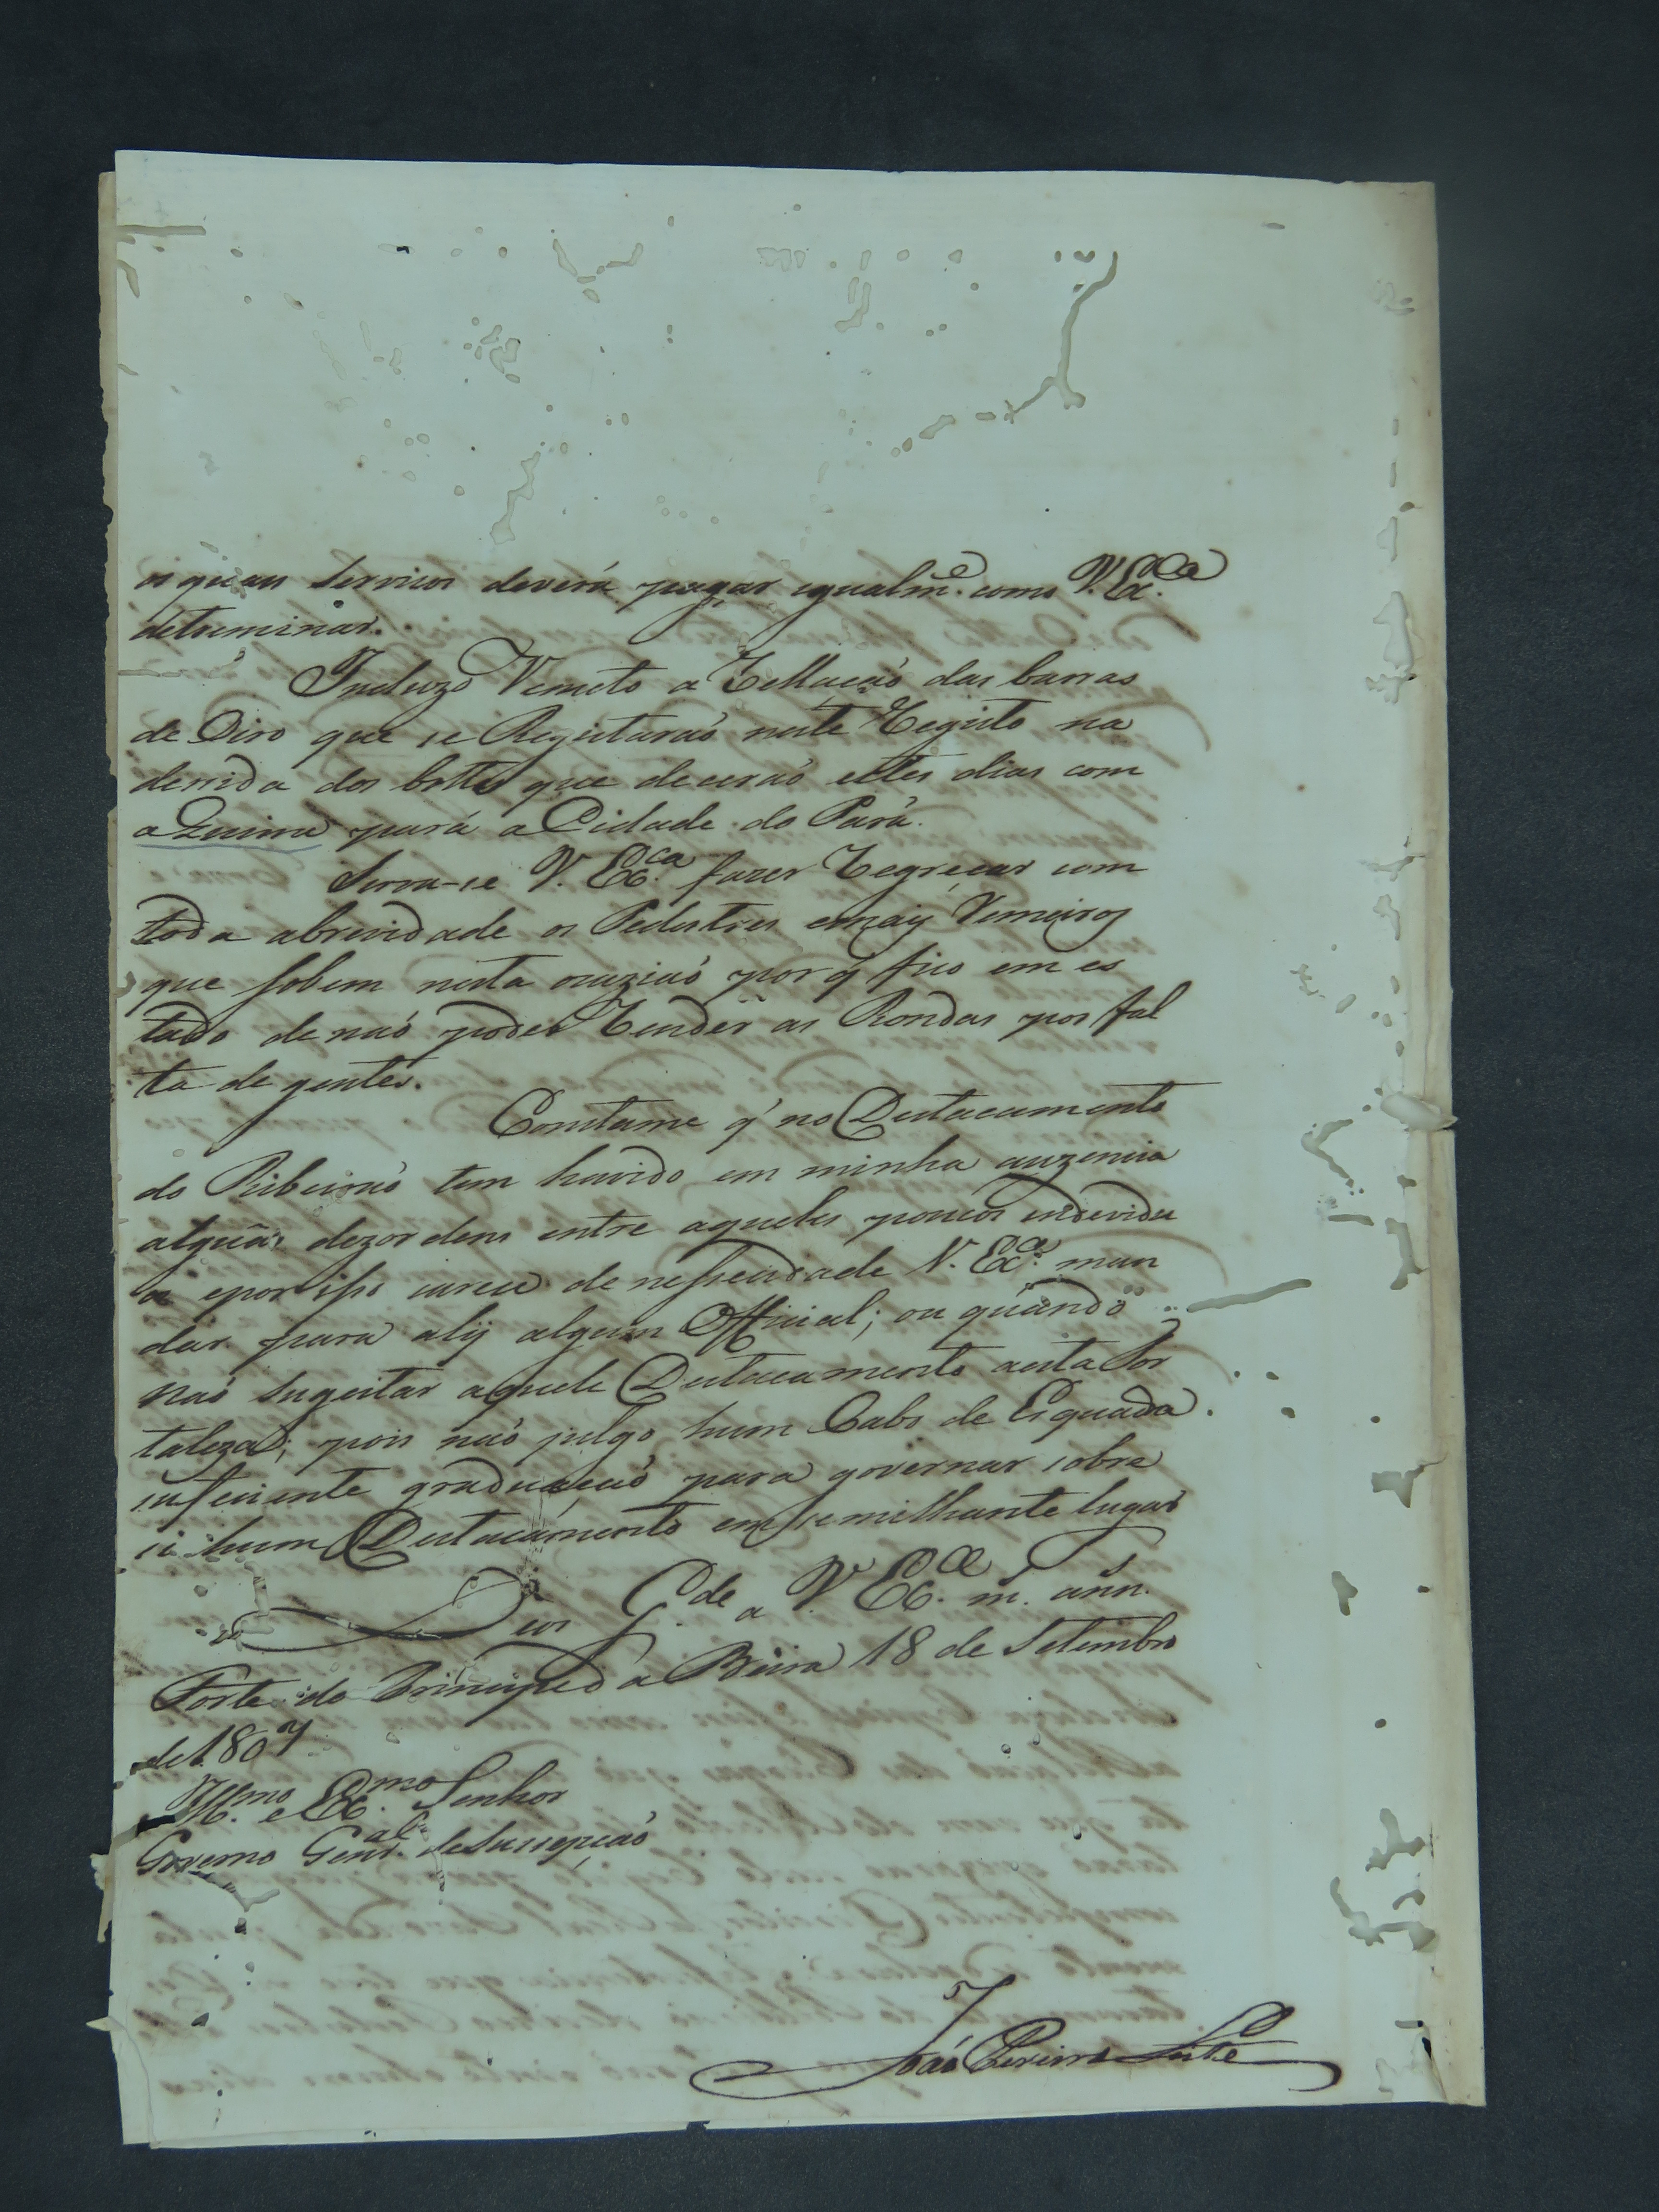 os quaes servicos deverá pagar igualm.e como V. Ex.ca
detriminar.
Incluzo Remeto a Rellacaó das barras
de Oiro que se Regestaraó neste Registo na
decida dos bottes que deceraó estes dias com
a Quina pará a Cidade do Pará.
Sirva-se V. Ex.ca fazer Regreçar com
toda abrevidade os Pedestres emais Remeiros
que sobem nesta ocaziaó por q̃ fico em es
tado de naó poder Render as Rondas por fal
ta de gentes.
Constame q̃ no Destacamento
do Ribeiraó tem havido em minha auzencia
alguãs dezordens entre aqueles poucos endevidu
os epor iso carece de nesecidade V. Ex.ca man
dar para alij algum Official; ou quando
naó sugeitar aquele Destacamento aesta For
taleza; pois naó julgo hum Cabo de Esquada
suficiente graduacaó para governar sobre
si hum Destacamento em semilhante lugar
Deos G.de a V. Ex.ca m. ann.s
Forte do Principe da Beira 18 de Setembro
de 1807
Ill.mo e Ex.mo Senhor
Governo Gen.al de Sucepcaó
Joaó Pereira Leite